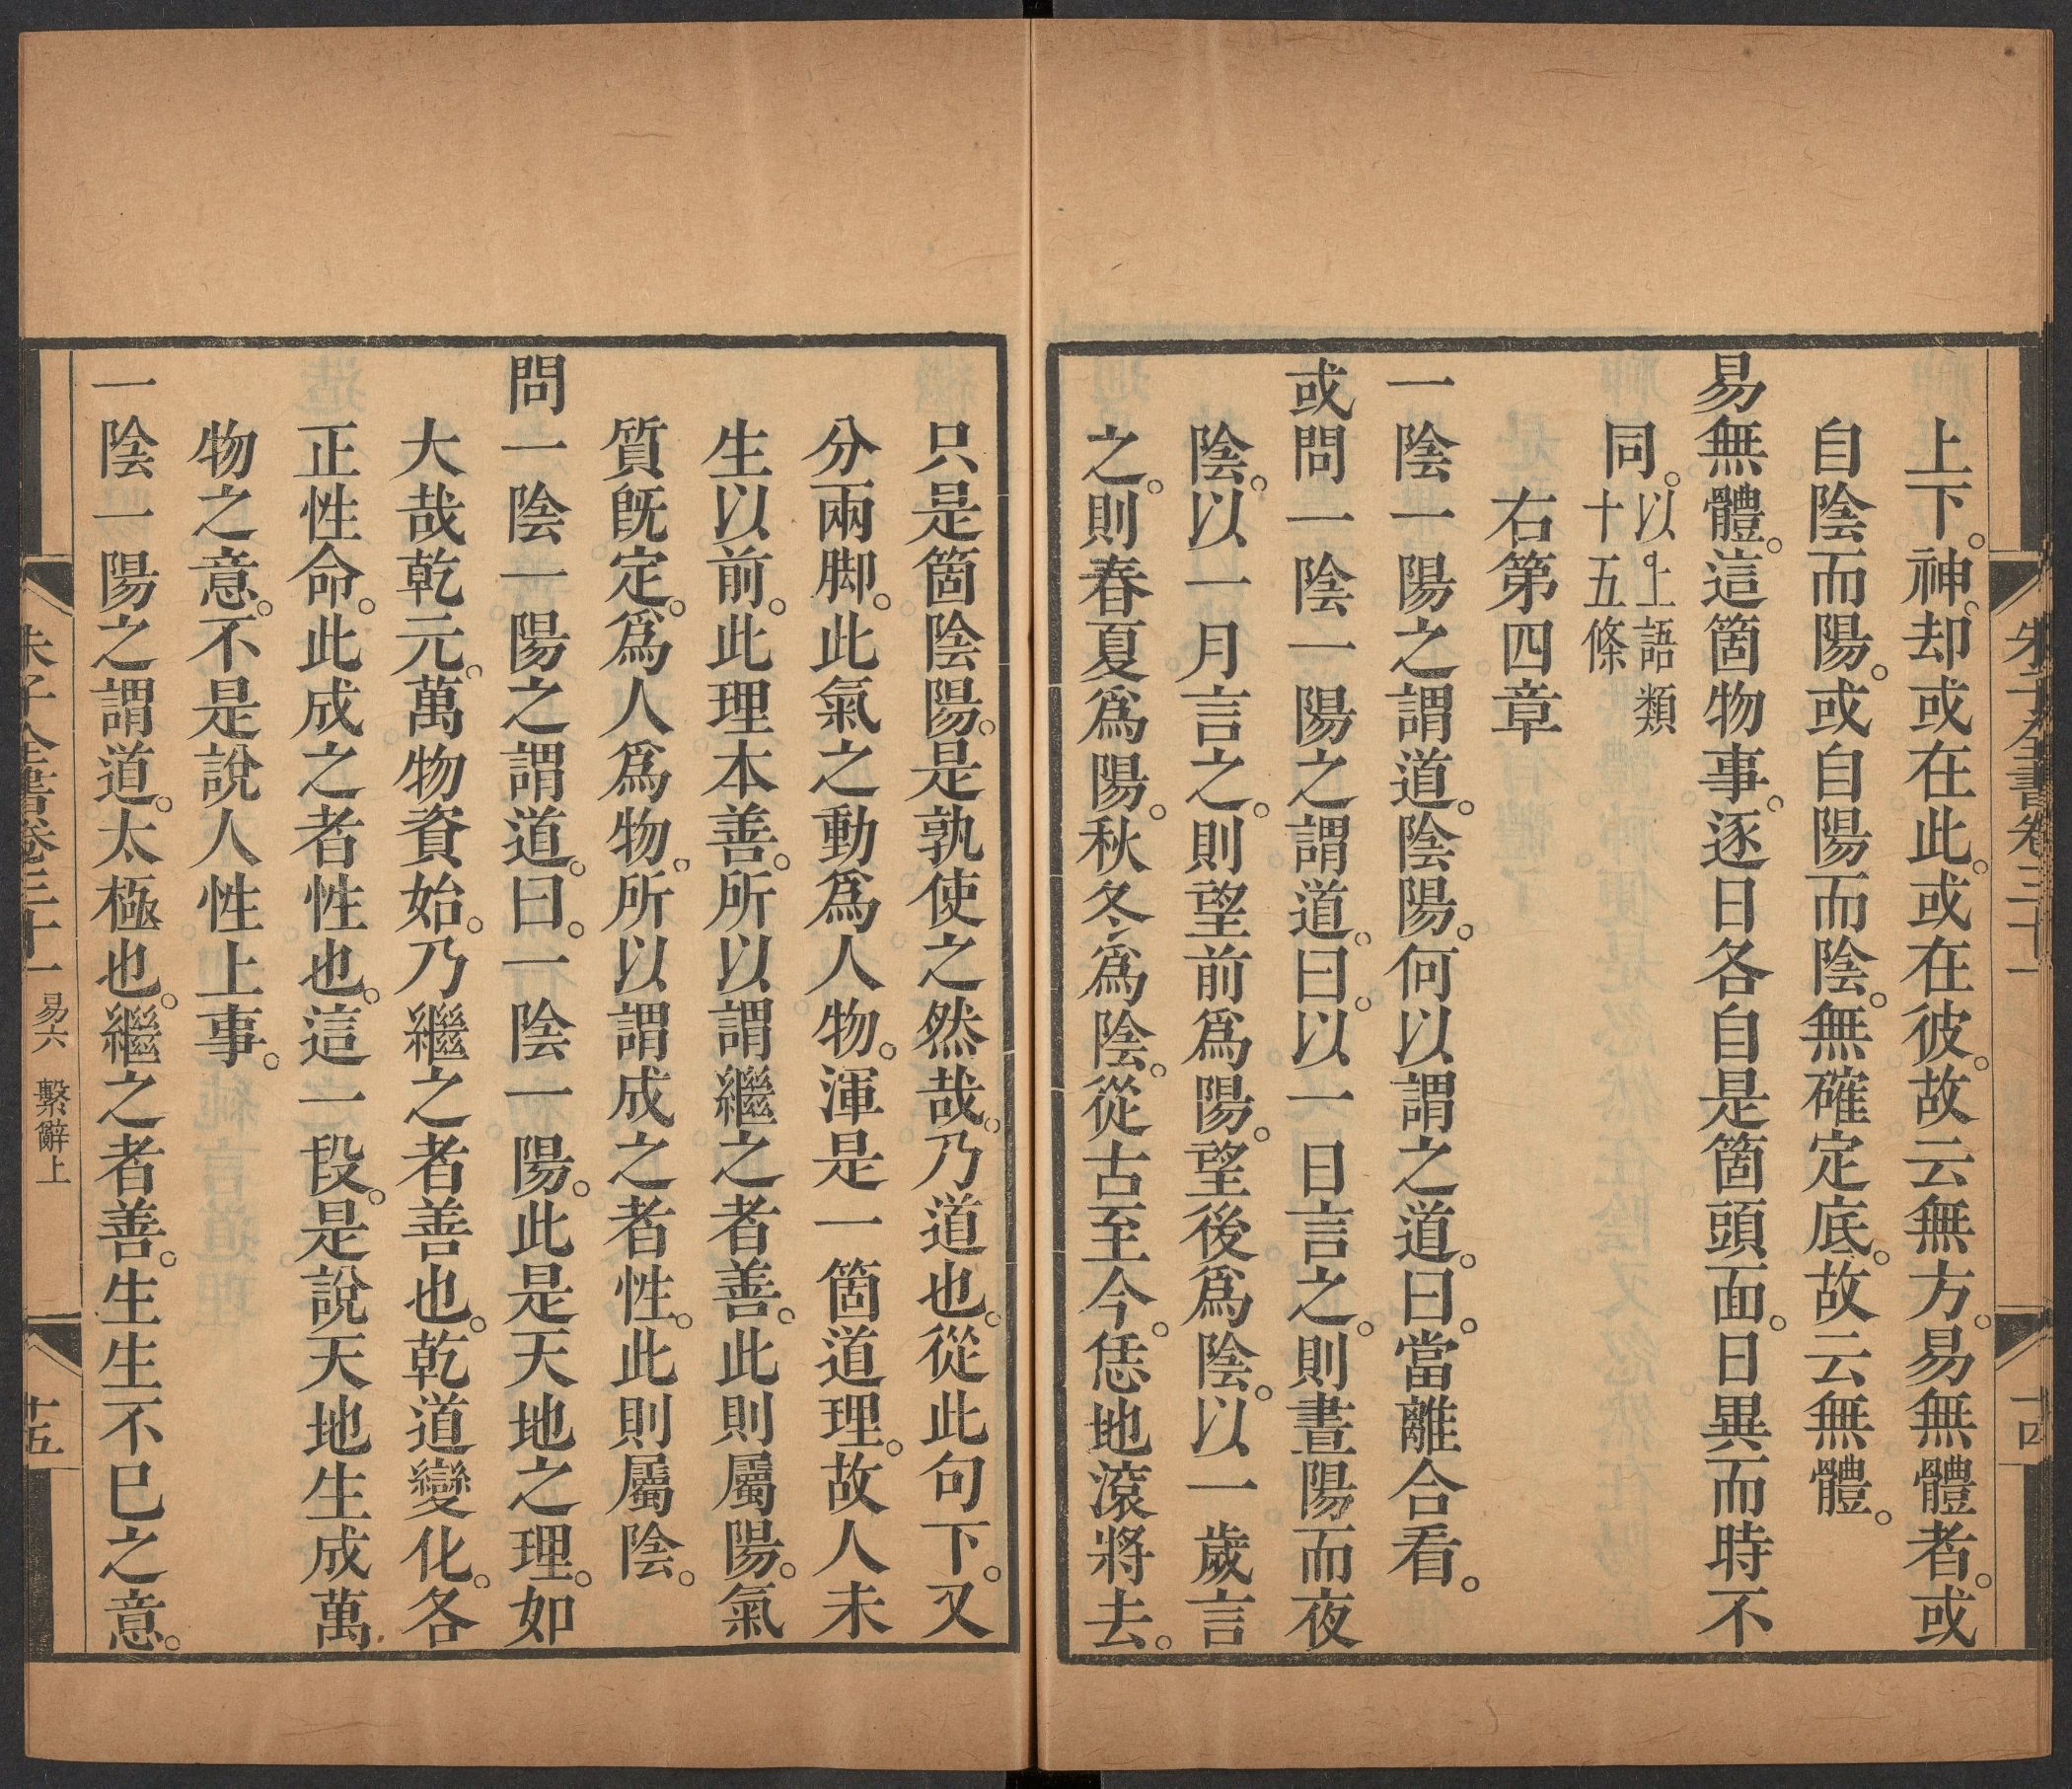 朱子全書卷三十一
十四
上下。神却或在此。或在彼。故云無方。易無體者。或
自陰而陽。或自陽而陰。無確定底。故云無體。
易無體。這箇物事。逐日各自是箇頭面。日異而時不
同。以上語類
十五條
右第四章
一陰一陽之謂道。陰陽。何以謂之道。曰。當離合看。
或問一陰一陽之謂道。曰。以一日言之。則晝陽而夜
陰。以一月言之。則望前爲陽。望後爲陰。以一歲言
之。則春夏爲陽。秋冬爲陰。從古至今。恁地滾將去。
只是箇陰陽。是孰使之然哉。乃道也。從此句下。又
分兩脚。此氣之動爲人物。渾是一箇道理。故人未
生以前。此理本善。所以謂繼之者善。此則屬陽。氣
質旣定。爲人爲物。所以謂成之者性。此則屬陰。
問一陰一陽之謂道。曰。一陰一陽。此是天地之理。如
大哉乾元。萬物資始。乃繼之者善也。乾道變化。各
正性命。此成之者性也。這一段。是說天地生成萬
物之意。不是說人性上事。
一陰一陽之謂道。太極也。繼之者善。生生不已之意。
朱子全書卷三十一 易六 繫辭上
十五